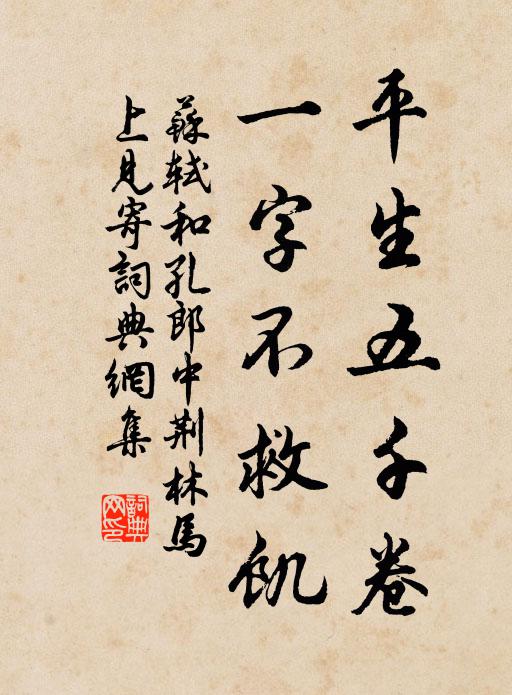 平生五千卷
一字不救飢
蘇軾和孔郎中荆林馬
上見寄詞典網集
詞典
网印